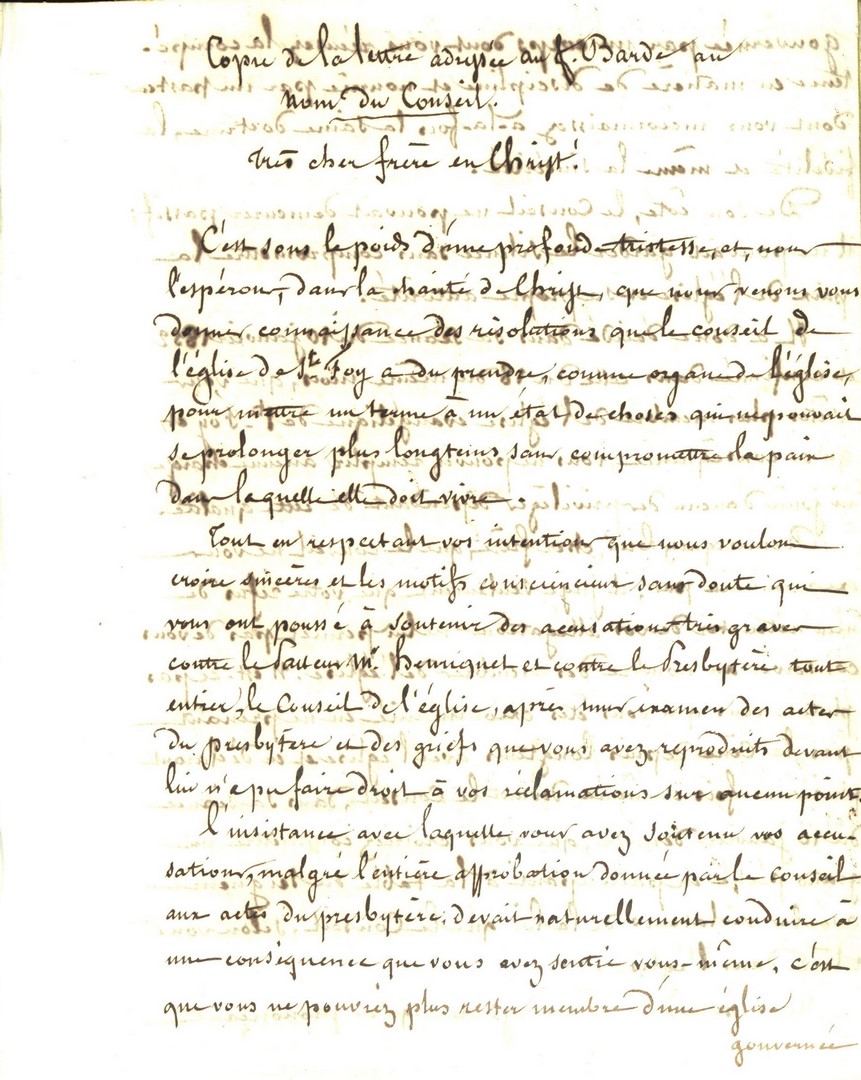 Copie de la lettre adressée au f. Barde au
nom du Conseil.
Très cher frère en Christ!
C'est sous le poids d'une profonde tristesse, et, nous
l'espérons, dans la charité de Christ, que nous venons vous
donner connaissance des résolutions que le conseil de
l'église de Ste Foy a du prendre, comme organe de l'église,
pour mettre un terme à un état de choses qui ne pouvait
se prolonger plus longtems sans compromettre la paix
dans laquelle elle doit vivre.
Tout en respectant vos intentions que nous voulons
croire sincères et les motifs consciencieux sans doute qui
vous ont poussé à soutenir des accusations très graves
contre le Pasteur Mr. Henriquet et contre le Presbytère tout
entier, le Conseil de l'église, après mur examen des actes
du presbytère et des griefs que vous avez reproduits devant
lui n'a pu faire droit à vos réclamations sur aucun point.
L'insistance avec laquelle vous avez soutenu vos accu-
sations, malgré l'entière approbation donnée par le conseil
aux actes du presbytère, devait naturellement conduire à
une conséquence que vous avez sentie vous-même, c'est
que vous ne pouviez plus rester membre d'une église
gouvernée